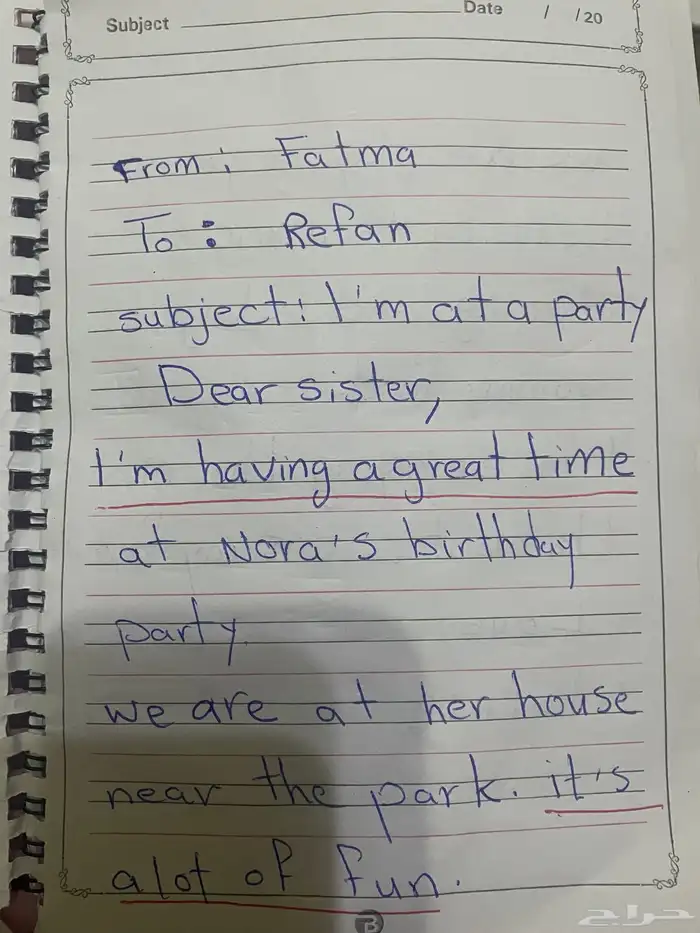 Subject
Date / /20
From: Fatma
To: Refan
subject: I'm at a party
Dear sister,
I'm having a great time
at Nora's birthday
party.
we are at her house
near the park. it's
alot of fun.
حراج